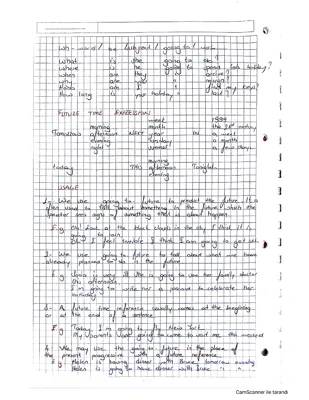 Wh- word / be (subject) / going to / verb
What is she going to do?
Where is he going to spend his holiday?
When are they " " arrive?
Why are we " "
How am I " " find my keys?
How long is your holiday " " last?
FUTURE TIME EXPRESSION
week 1999
morning month the 21st century
Tomorrow afternoon NEXT year IN a week
evening Tuesday a month
night summer a few days
morning
today THIS afternoon Tonight
evening
USAGE
1- We use going to future to predict the future. It is
often used to talk about something in the future which the
speaker sees signs of something that is about happen.
E.g Oh! Look at the black clouds in the sky. I think it is
going to rain.
I feel terrible. I think I am going to get sick.
2- We use going to future to talk about what we have
already planned to do in the future
E.g is very ill. She is going to see her family doctor
this afternoon.
I'm going to write her a poem to celebrate her
birthday
3- A future time reference usually comes at the beginning
or at the end of a sentence
E.g Today, I'm going to fly New York.
My parents aren't going to come to visit me this weekend
4- We may use going to future in the place of
the present progressive with a future reference.
E.g Helen is having dinner with tomorrow evening
Helen is going to have dinner with
CamScanner ile tarandı